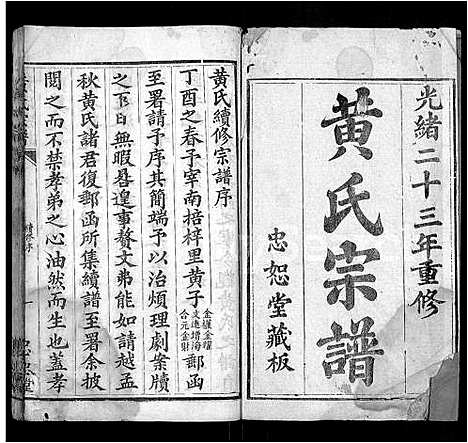 光緒二十三年重修
黃氏宗譜
忠恕堂藏板
黃氏續修宗譜序
丁酉之春予宰南掊梓里黃子
金耀
金耀
支連增海
合元金財
郵函
至署請予序其簡端予以治煩理劇案牘
之下日無暇晷遑事贅文弗能如請越孟
秋黃氏諸君復郵函所集續譜至署余披
閱之而不禁孝弟之心油然而生也蓋孝